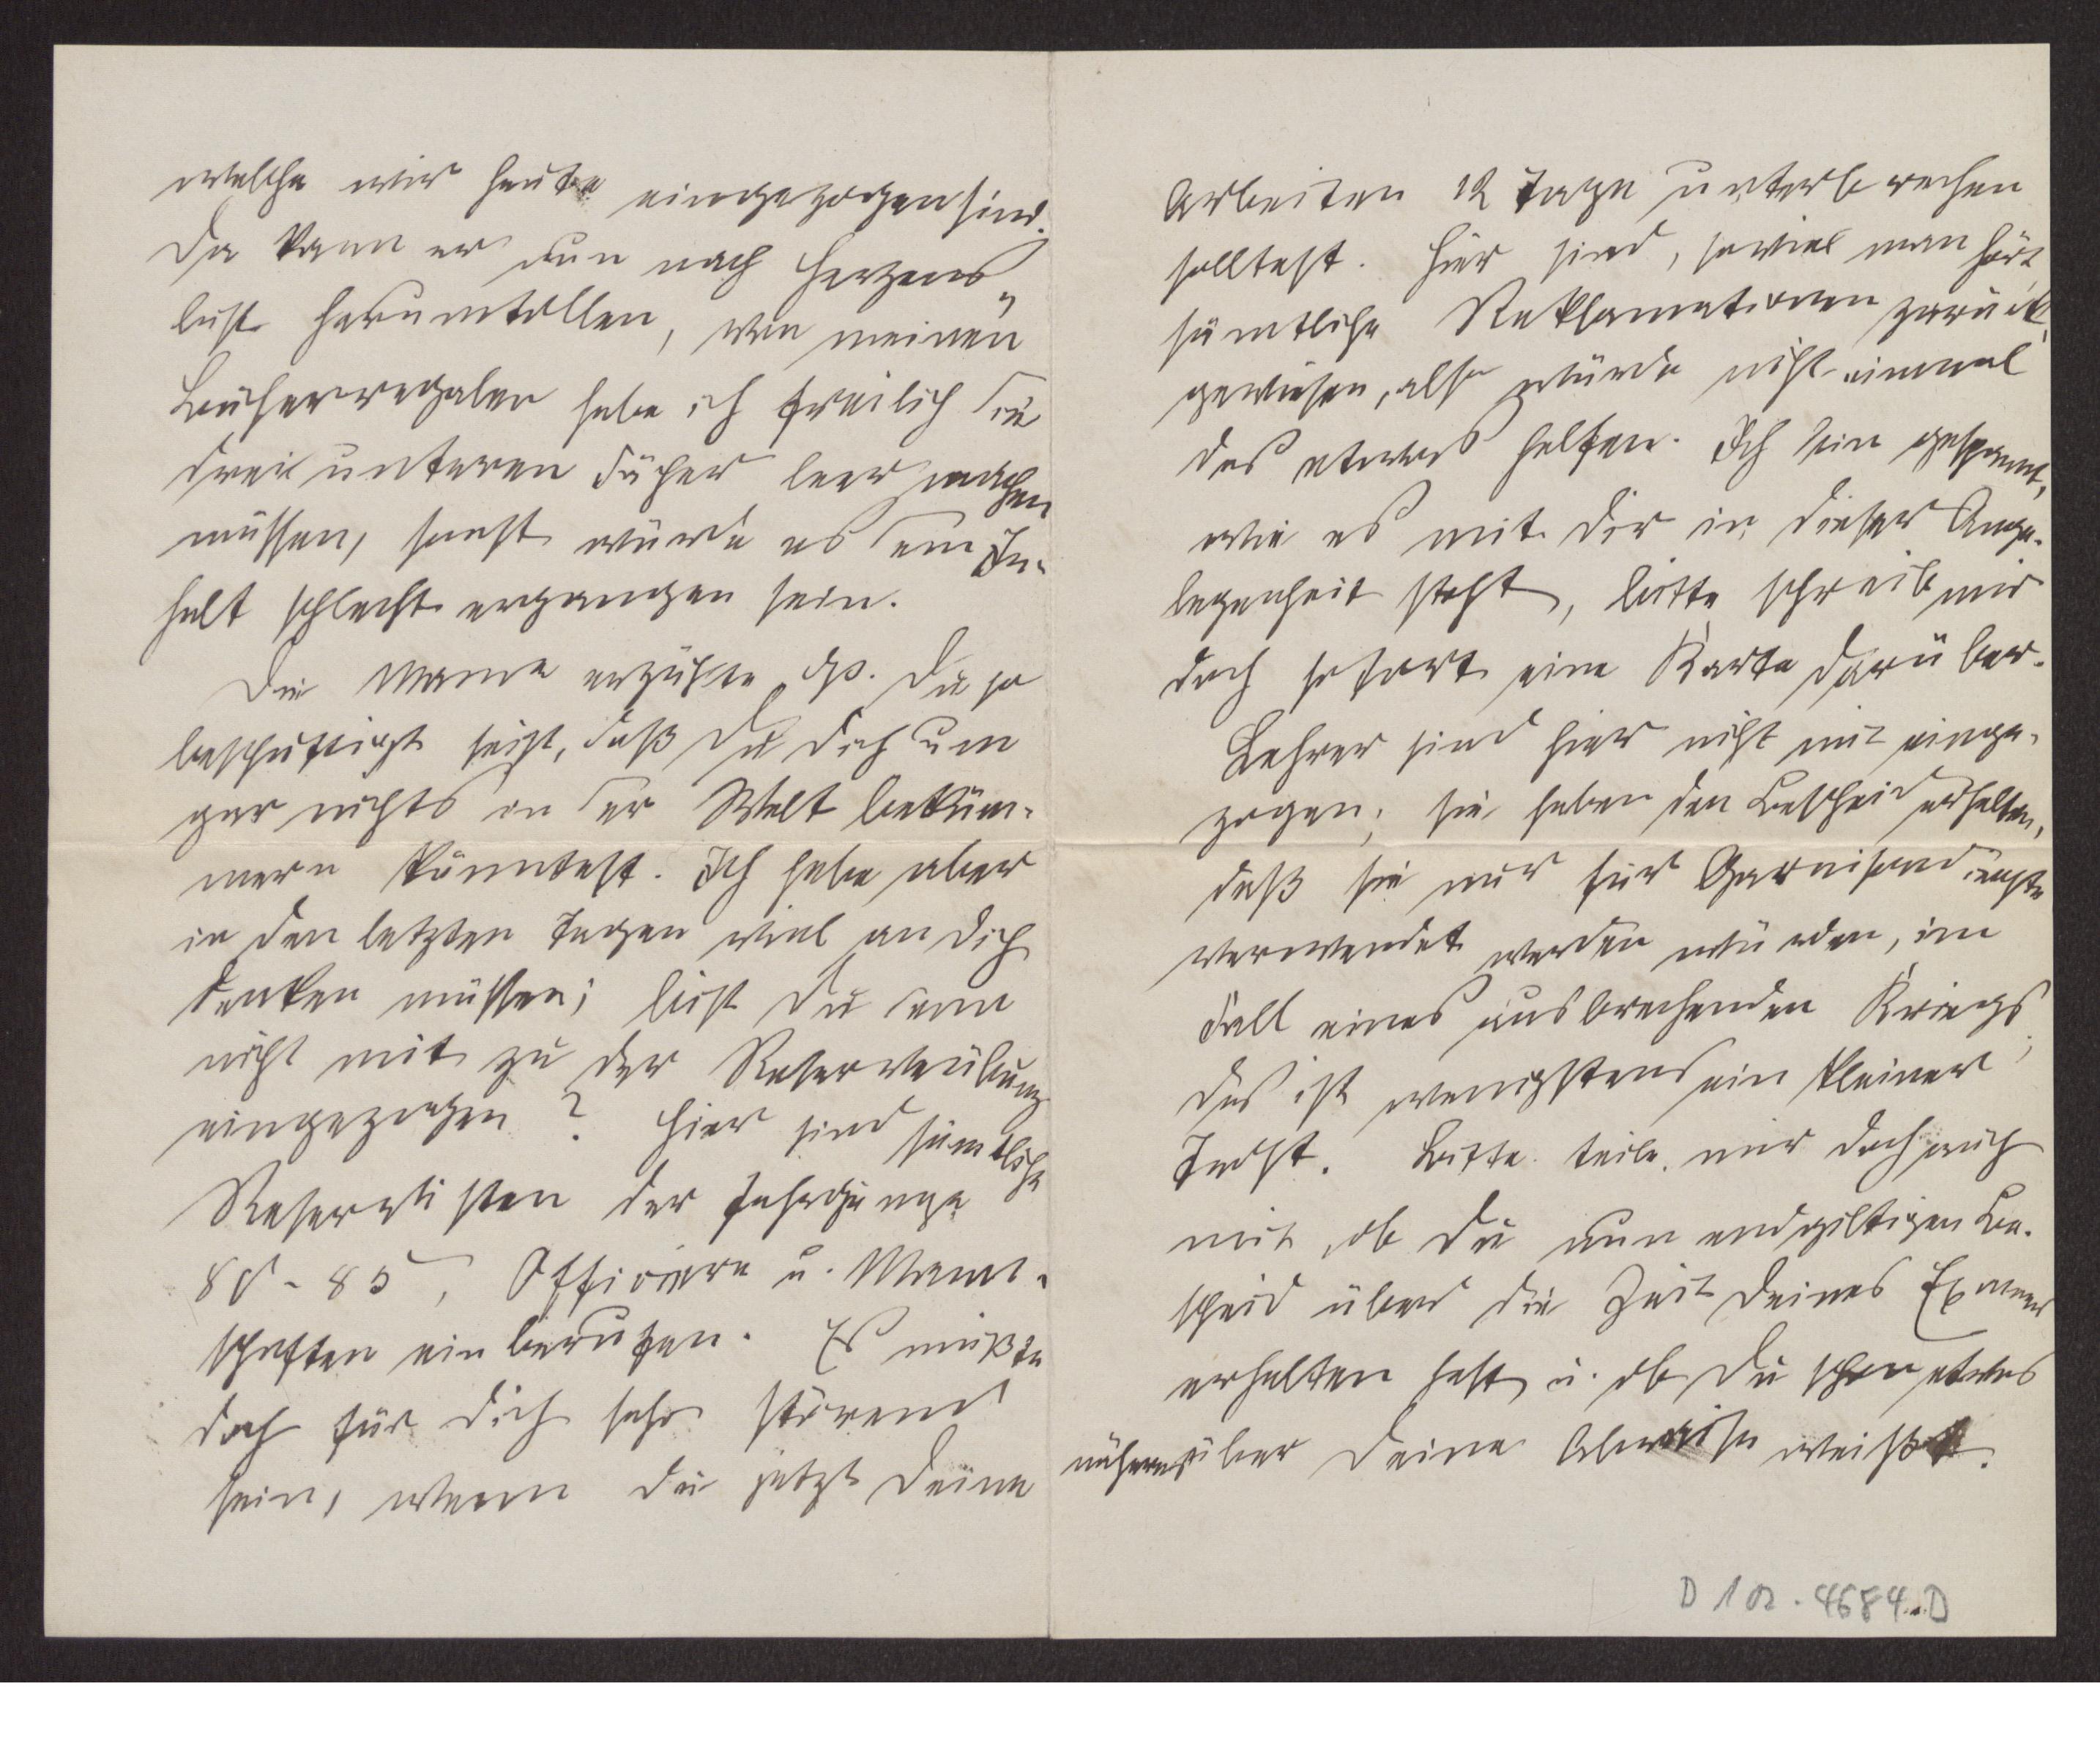 welche wir heute eingezogen sind.
Da kann er nun nach Herzens„
lust herumtollen, von meinen
Bücherregalen habe ich freilich die
drei unteren Fächer leer machen
müssen, sonst würde es dem In-
halt schlecht ergangen sein.
Die Mama erzählte, dß. Du so
beschäftigt seist, daß Du dich um
gar nichts in der Welt beküm-
mern könntest. Ich habe aber
in den letzten Tagen viel an dich
denken müssen; bist Du denn
nicht mit zu der Reserveübung
eingezogen? Hier sind sämtliche
Reservisten der Jahrgänge
80-85, Officiere u. Mann-
schaften einberufen. Es müßte
doch für dich sehr störend
sein, wenn du jetzt deine
Arbeiten 12 Tage unterbrechen
solltest. Hier sind, soviel man hört
sämtliche Reklamationen zurück,
gewiesen, also würde nicht einmal
das etwas helfen. Ich bin gespannt,
wie es mit dir in dieser Ange-
legenheit steht, bitte schreib mir
doch sofort eine Karte darüber.
Lehrer sind hier nicht mit einge-
zogen; sie haben den Bescheid erhalten,
daß sie nur für Garnisondienste
verwendet werden würden, im
Fall eines ausbrechenden Kriegs;
das ist wenigstens ein kleiner
Trost. Bitte teile mir doch auch
mit, ob du nun endgiltigen Be-
scheid über die Zeit deines Examens
erhalten hast, u. ob du schon etwas
näheres über deine Abreise weißt.
D 102.4684.D